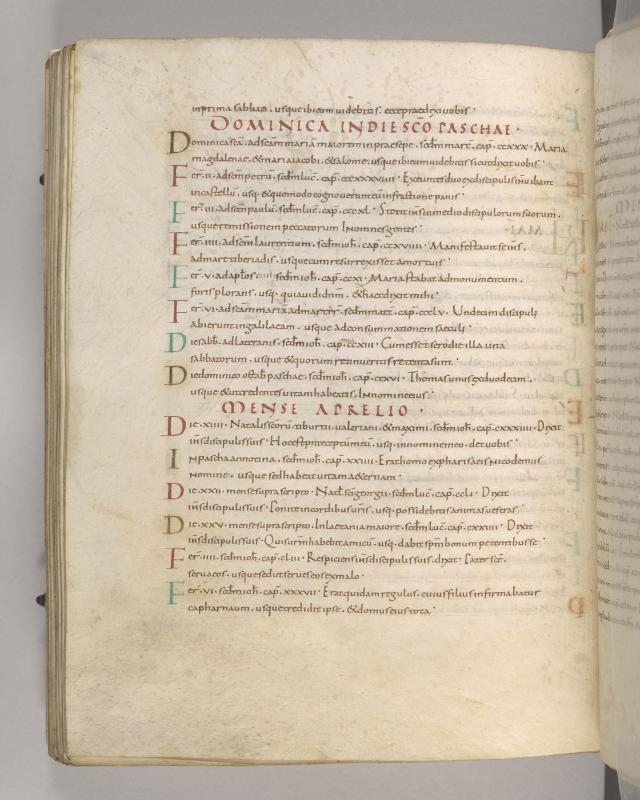 inprima sabbati. usque ibi eum videbitis. ecce praedixi vobis.
DOMINICA IN DIE SCO PASCHAE.
Dominica scā. ad scam mariā maiorem in praesepe. Scdm marc. cap. ccxxx. Maria
magdalenae. & maria iacobi. & salome. usque ibi eum videbitis sicut dixit vobis.
Fer. ii. ad scm petrū. scdm luc. cap. cccxxxviiii. Exeuntes duo ex discipulis ihu ibant
in castellū. usq. & quomodo cognoverunt eū in fractione panis.
Fer. iii. ad scm paulū. scdm luc. cap. cccxl. Stetit ihs in medio discipulorum suorum.
usque remissionem peccatorum In omnes gentes.
Fer. iiii. ad scm laurentium. scdm ioh. cap. ccxviiii. Manifestavit se ihs.
ad mare tiberiadis. usque cum resurrexisset a mortuis.
Fer. v. ad aplos scdm ioh. cap. ccxi. Maria stabat ad monumentum.
foris plorans. usq. quia vidi dnm. & haec dixit mihi.
Fer. vi. ad scam mariā ad martyr. scdm matt. cap. ccclv. Undecim discipuli
abierunt in galilaeam. usque ad consummationem saeculi.
Die sabb. ad lateranis. scdm ioh. cap. ccxiii. Cum esset sero die illa una
sabbatorum. usque & quorum retinueritis retenta sunt.
Die dominico octab paschae. scdm ioh. cap. ccxvi. Thomas unus ex duodecim.
usque & ut credentes vitam habeatis. In nomine eius.
MENSE APRELIO.
Die. xiiii. Natali scorū tiburtii. valeriani. & maximi. scdm ioh. cap. cxxxiiii. Dixit
ihs discipulis suis. Hoc est praeceptū meū. usq. in nomine meo. det vobis.
IN pascha annotina. scdm ioh. cap. xxiiii. Erat homo ex pharisaeis Nicodemus
Nomine. usque sed habeat vitam aeternam.
Die. xxii. mense suprascripto. Nat sci georgii. scdm luc. cap. ccli. Dixit
ihs discipulis suis. Ponite in cordibus vris. usq. possidebitis animas vestras.
Die. xxv. mense suprascripto. In laetania maiore. scdm luc. cap. cxxiiii. Dixit
ihs discipulis suis. Quis vrm habebit amicū. usq. dabit spm bonum petentibus se.
Fer. iiii. scdm ioh. cap. cliii. Respiciens ihs discipulis suis. dixit. Pater scē.
serva eos. usque sed ut serves eos ex malo.
Fer. vi. scdm ioh. cap. xxxvii. Erat quidam regulus. cuius filius infirmabatur
capharnaum. usque credidit ipse. & domus eius tota.